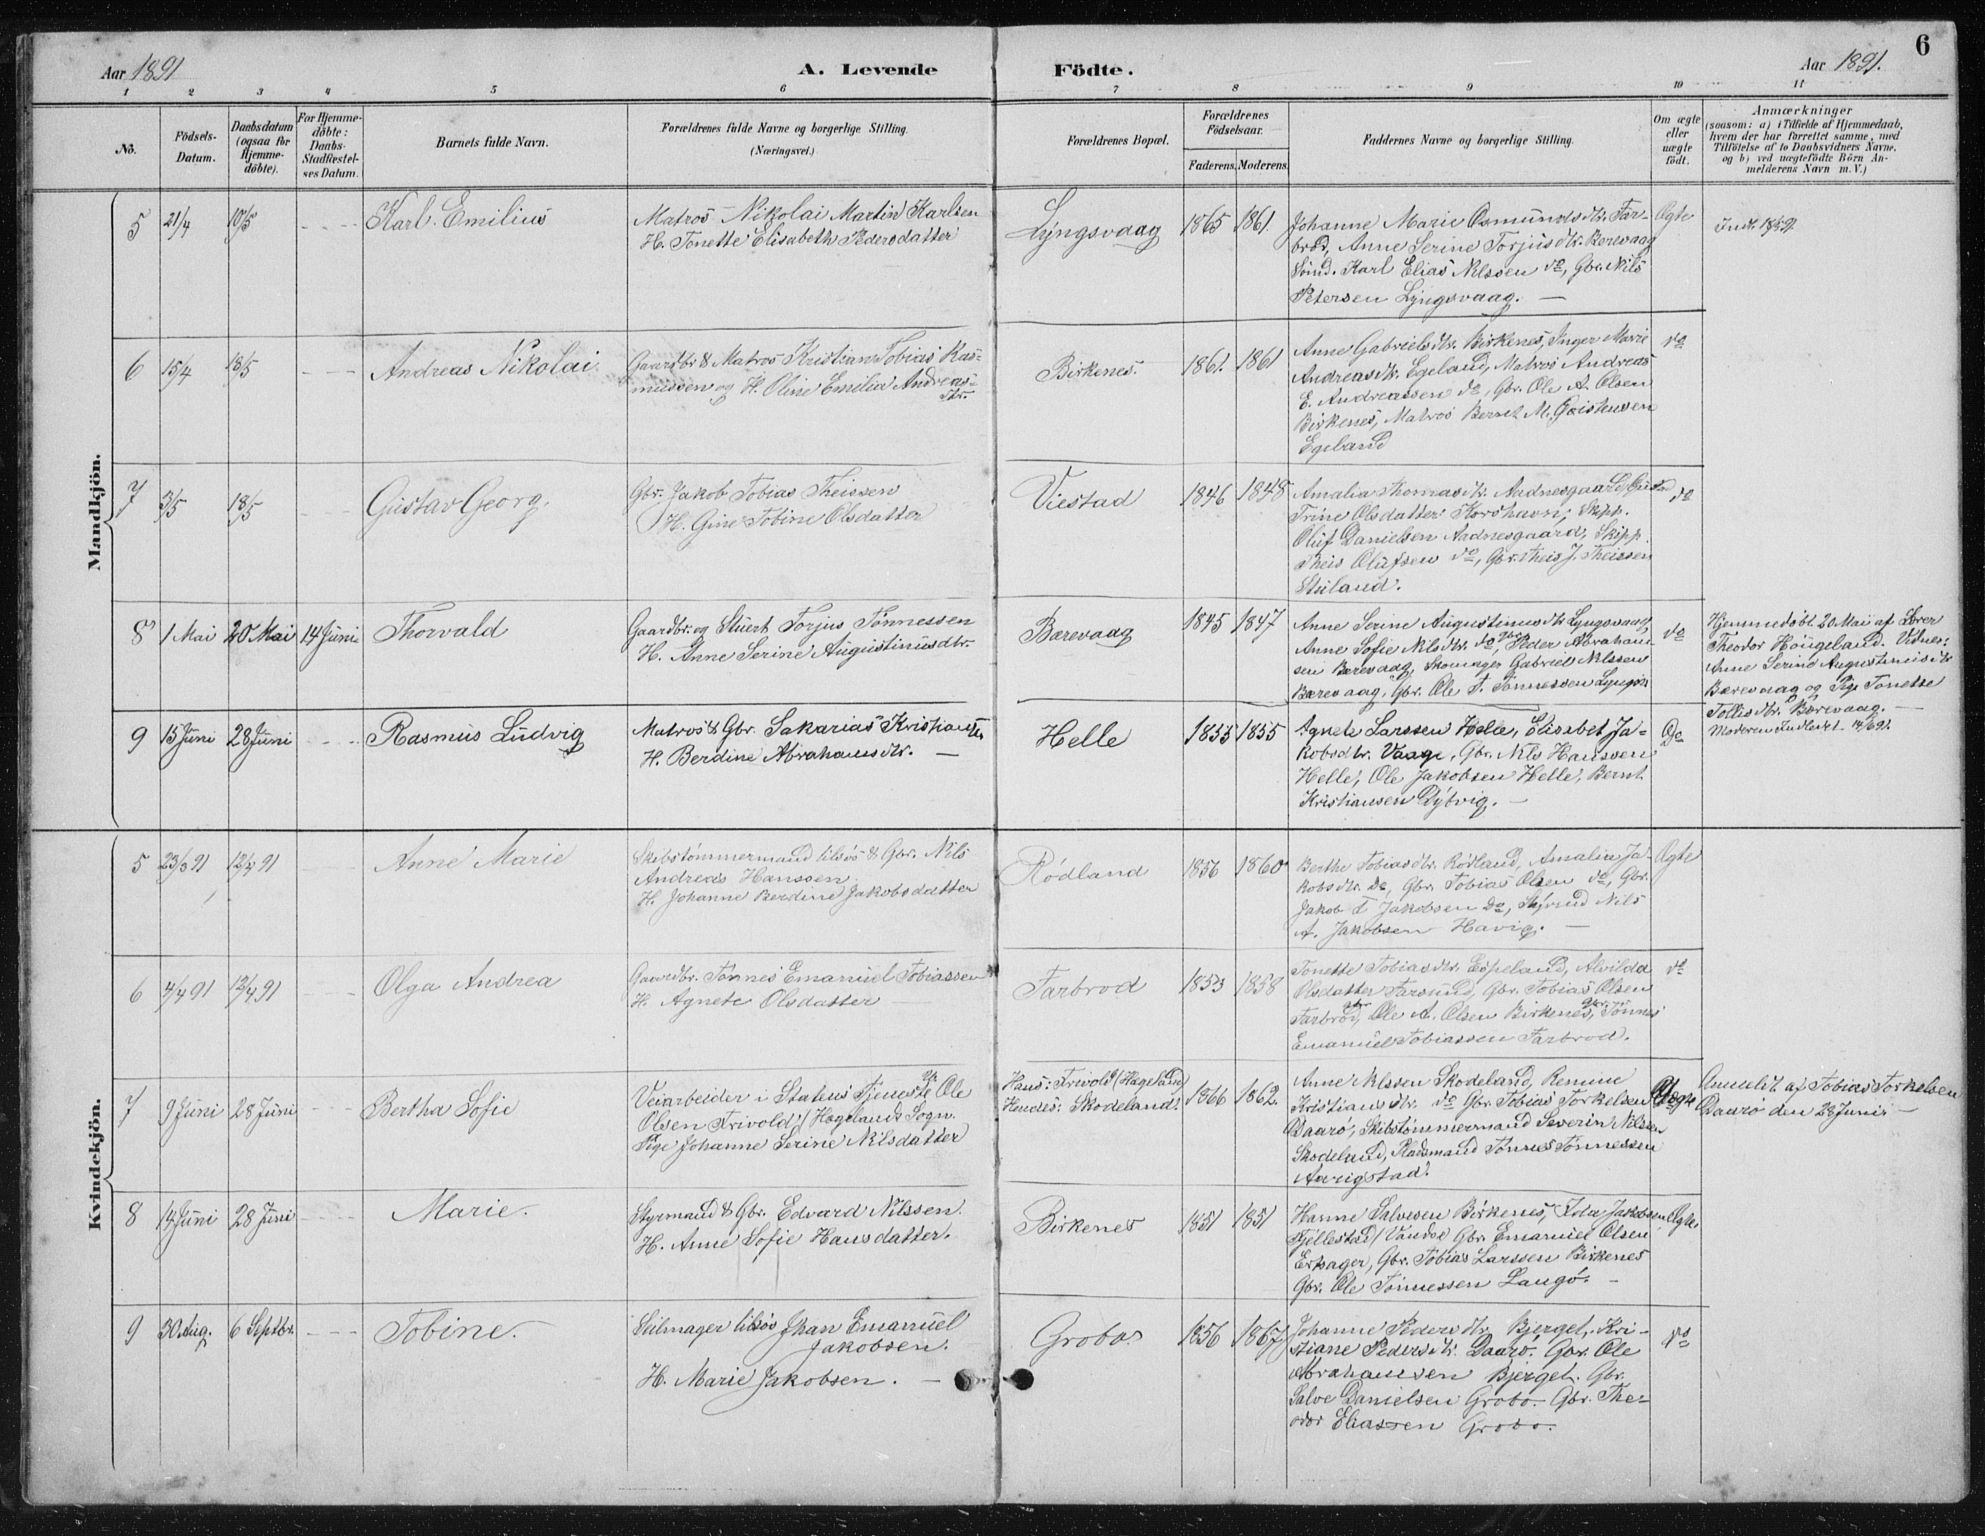 6
Aar 1891
A. Levende
Födte.
Aar 1891.
1 2 3 4 5 6 7 8 9 10 11
No.
Födsels-
Datum.
Daabsdatum
(ogsaa for
Hjemme-
döbte).
For Hjemme-
döbte:
Daabs-
Stadfæstel-
ses Datum.
Barnets fulde Navn.
Forældrenes fulde Navne og borgerlige Stilling.
(Næringsvei.)
Forældrenes Bopæl.
Forældrenes
Födselsaar.
Faderens.
Moderens.
Faddernes Navne og borgerlige Stilling.
Om ægte
eller
uægte
födt.
Anmærkninger
(saasom: a) i Tilfælde af Hjemmedaab,
hvem der har forrettet samme, med
Tilföielse af to Daabsvidners Navne.
og b) ved uægtefödte Börn An-
melderens Navn m. V.)
Mandkjön.
5 21/4 10/5
Karl Emilius
Matros Nikolai Martin Karlsen
H. Tonette Elisabeth Pedersdatter
Lyngsvaag
1865 1861.
Johanne Marie Osmundsdtr. Far-
brod, Anne Serine Torjusdtr. Borevaag
Karl Elias Nilssen do, Gbr. Nils
Petersen Lyngsvaag. —
Ægte
6 15/4 18/5
Andreas Nikolai.
Gaardbr & Matros Kristian Tobias Ras-
mussen og H. Oline Emilie Andreas-
dtr.
Birkenes.
1861. 1861
Anne Gabrielsdtr. Birkenes, Inger Marie
Andreasdtr. Egeland, Matros Andreas
E. Andreassen do, Gbr. Ole A. Olsen
Birkenes, Matros Bernt M.
Egeland
do
7 3/5 18/5
Gustav Georg.
Gbr. Jakob Tobias Theissen
H. Gine Tobine Olsdatter
Viestad
1846 1848
Amalia Thomasdtr. Aadnesgaard,
Trine Olsdatter Korshavn, Skipp.
Oluf Danielsen Aadnesgaard, Skipp.
Theis Olufsen do, Gbr. Theis J. Theissen
Stuland.
do
8 1 Mai 20 Mai 14 Juni
Thorvald
Gaardbr. og Stuert Torjus Tønnessen
H. Anne Serine Augustinusdtr.
Børevaag
1845 1847
Anne Serine Augustinusdtr Lyngsvaag,
Anne Sofie Nilsdtr. do, Gbr. Peder Abraham-
sen Børevaag, Skomager Gabriel Nilssen
Børevaag, Gbr. Ole T. Tønnessen
do
Hjemmedøbt 20 Mai af Lærer
Theodor Høugeland. Vidner:
Anne Serine Augustinusdtr
Børevaag og Pige Tonette
Tollisdtr. Børevaag. —
Moderen Indledet 14/6 91.
9 15 Juni 28 Juni
Rasmus Ludvig
Matros & Gbr. Sakarias Kristiansen
H. Berdine Abrahamsdtr. —
Helle
1855 1855
Agnete Larssen Helle, Elisabet Ja-
kobsdtr. Vaage, Gbr. Nils Hanssen
Helle, Ole Jakobsen Helle, Bernt
Kristiansen Dybvig. —
Do
Kvindekjön.
5 23/3 91 12/4 91
Anne Marie
Skibstømmermand tilsøs & Gbr. Nils
Andreas Hanssen
H. Johanne Berdine Jakobsdatter
Rødland
1856 1860
Berthe Tobiasdtr. Rødland, Amalia Ja-
kobsdtr. Do, Gbr. Tobias Olsen do, Gbr.
Jakob T. Jakobsen Do, Nils
A. Jakobsen Havig. —
Ægte
6 4/4 91 12/4 91
Olga Andrea
Gaardbr. Tønnes Emanuel Tobiassen
H. Agnete Olsdatter —
Farbrod
1853 1858
Tonette Tobiasdtr. Espeland, Alvilda
Olsdatter Farsund, Gbr. Tobias Olsen
Farbrod, Gbr. Ole A. Olsen Birkenes, Gbr. Tønnes
Emanuel Tobiassen Farbrod.
do
7 9 Juni 28 Juni
Bertha Sofie
Veiarbeider i Statens Tjeneste Ole
Olsen Frivold (Høgeland Sogn
Pige Johanne Serine Nilsdatter
Hans: Frivold (Høgeland)
Hendes: Skodeland.
1866 1862
Anne Nilssen Skodeland, Remine
Kristiansdtr. do Gbr. Tobias Torkelsen
Daarø, Skibstømmermand Severin Nilsen
Skodeland, Pladsmand Tønnes Tønnessen
Uægte
Anmeldt af Tobias Torkelsen
Daarø den 28 Juni —
8 14 Juni 28 Juni
Marie.
Styrmand & Gbr. Edvard Nilssen
H. Anne Sofie Hansdatter.
Birkenes
1851 1851
Hanne Salvesen Birkenes, Ida Jakobsen
Fjellestad / Vandse Gbr. Emanuel Olsen
Erkager, Gbr. Tobias Larssen Birkenes
Gbr. Ole Tønnessen Langø. —
Ægte
9 30 Aug. 6 Septbr.
Tobine.
Seilmager tilsøs Johan Emanuel
Jakobsen.
H. Marie Jakobsen. —
Grobø
1856 1867
Johanne Pedersdtr. Bjerget, Kri-
stiane Pedersdtr. Daarø. Gbr. Ole
Abrahamsen Bjerget. Gbr.
Salve Danielsen Grobø. Gbr. The-
odor Eliassen Grobø.
do